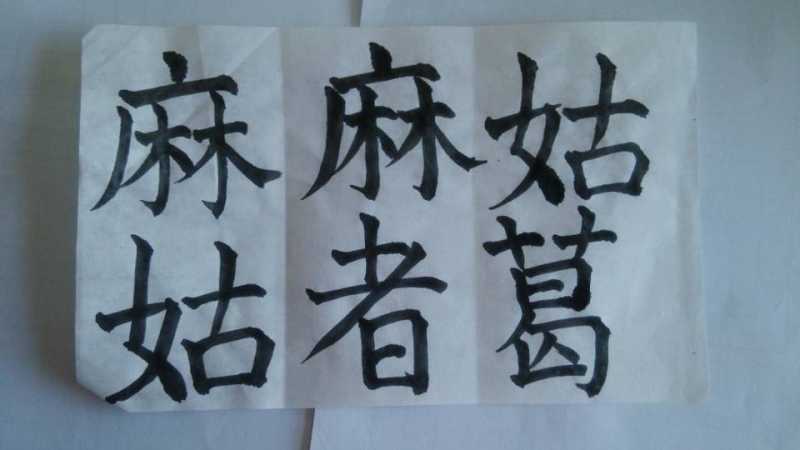 麻姑
麻姑
者葛